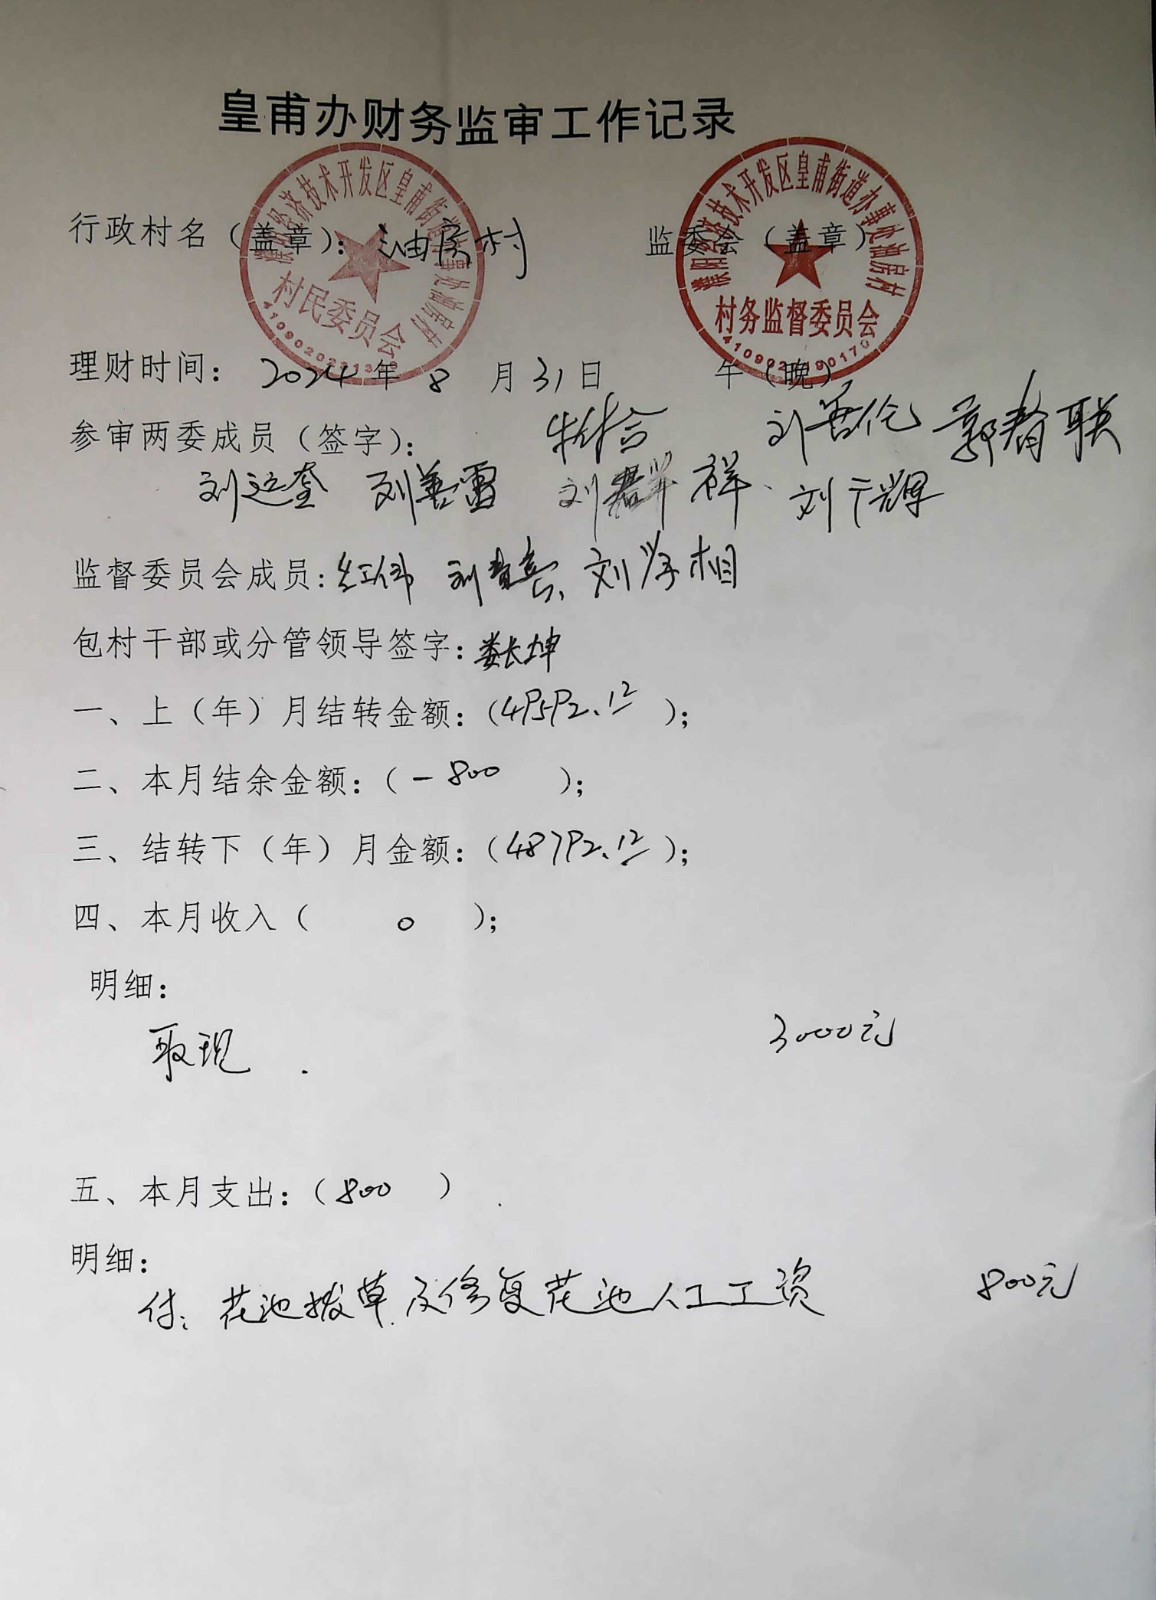 皇甫办财务监审工作记录
行政村名（盖章）：油房村 监委会（盖章）
濮阳经济技术开发区皇甫街道办事处油房村
村民委员会
濮阳经济技术开发区皇甫街道办事处油房村
村务监督委员会
理财时间： 2024年 8 月31日 午（晚）
参审两委成员（签字）： 刘善伦 郭春联
刘运奎 刘善雷 刘 祥 刘广辉
监督委员会成员: 红伟 刘 刘学相
包村干部或分管领导签字: 娄长坤
一、上（年）月结转金额：（49592.12 ）；
二、本月结余金额：（-800 ）；
三、结转下（年）月金额：（48792.12 ）；
四、本月收入（ 0 ）；
明细：
取现 . 3000元
五、本月支出：（800 ）
明细：
付：花池拔草及修复花池人工工资 800元